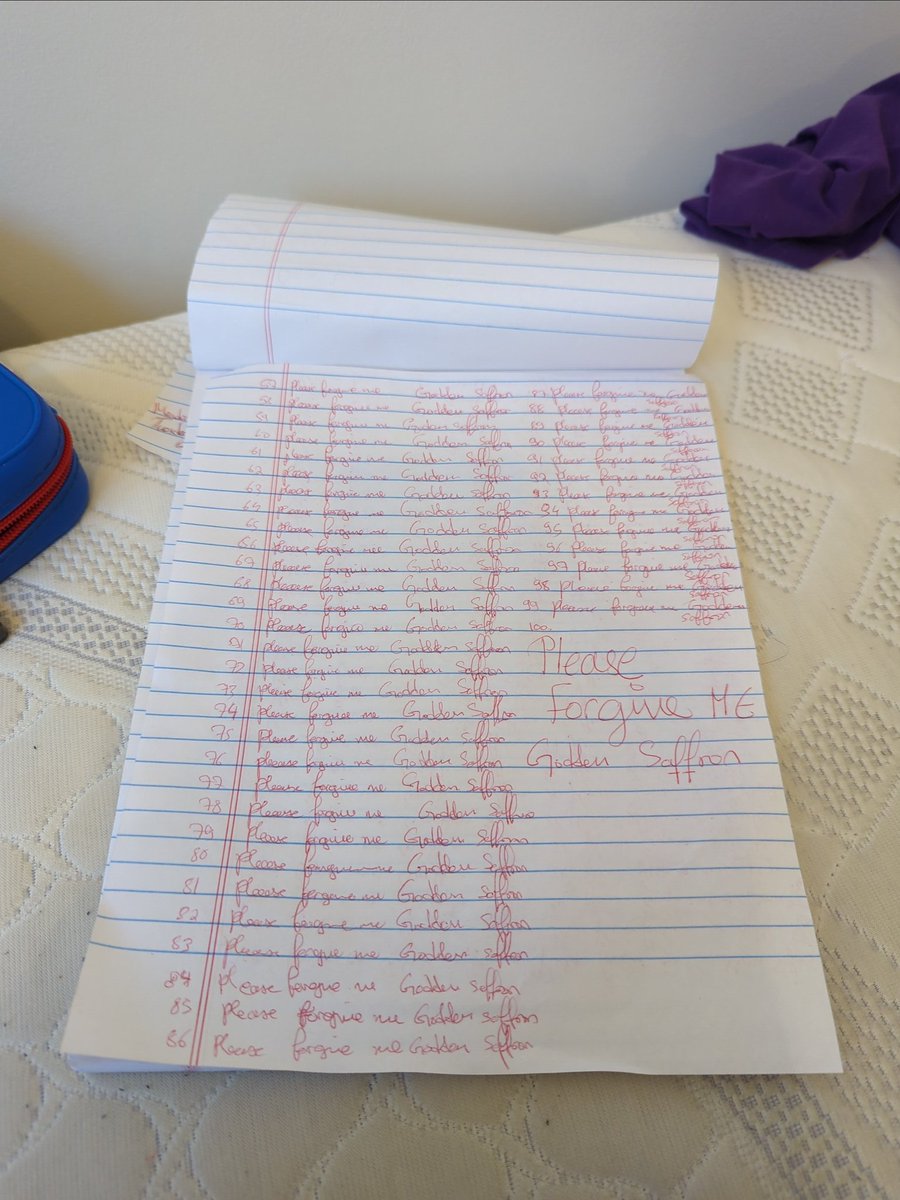 58 Please forgive me Godden Saffron
59 Please forgive me Godden Saffron
60 Please forgive me Godden Saffron
61 Please forgive me Godden Saffron
62 Please forgive me Godden Saffron
63 Please forgive me Godden Saffron
64 Please forgive me Godden Saffron
65 Please forgive me Godden Saffron
66 Please forgive me Godden Saffron
67 Please forgive me Godden Saffron
68 Please forgive me Godden Saffron
69 Please forgive me Godden Saffron
70 Please forgive me Godden Saffron
71 Please forgive me Godden Saffron
72 Please forgive me Godden Saffron
73 Please forgive me Godden Saffron
74 Please forgive me Godden Saffron
75 Please forgive me Godden Saffron
76 Please forgive me Godden Saffron
77 Please forgive me Godden Saffron
78 Please forgive me Godden Saffron
79 Please forgive me Godden Saffron
80 Please me Godden Saffron
81 Please forgive me Godden Saffron
82 Please forgive me Godden Saffron
83 Please forgive me Godden Saffron
84 Please forgive me Godden Saffron
85 Please forgive me Godden Saffron
86 Please forgive me Godden Saffron
87 Please forgive me Godden
Saffron
88 Please forgive me Godden
Saffron
89 Please forgive me Godden
Saffron
90 Please forgive me Godden
Saffron
91 Please forgive me Godden
Saffron
92 Please forgive me Godden
Saffron
93 Please forgive me Godden
Saffron
94 Please forgive me Godden
Saffron
95 Please forgive me Godden
Saffron
96 Please forgive me Godden
Saffron
97 Please forgive me Godden
Saffron
98 Please forgive me Godden
Saffron
99 Please forgive me Godden
Saffron
100
Please
Forgive ME
Godden Saffron